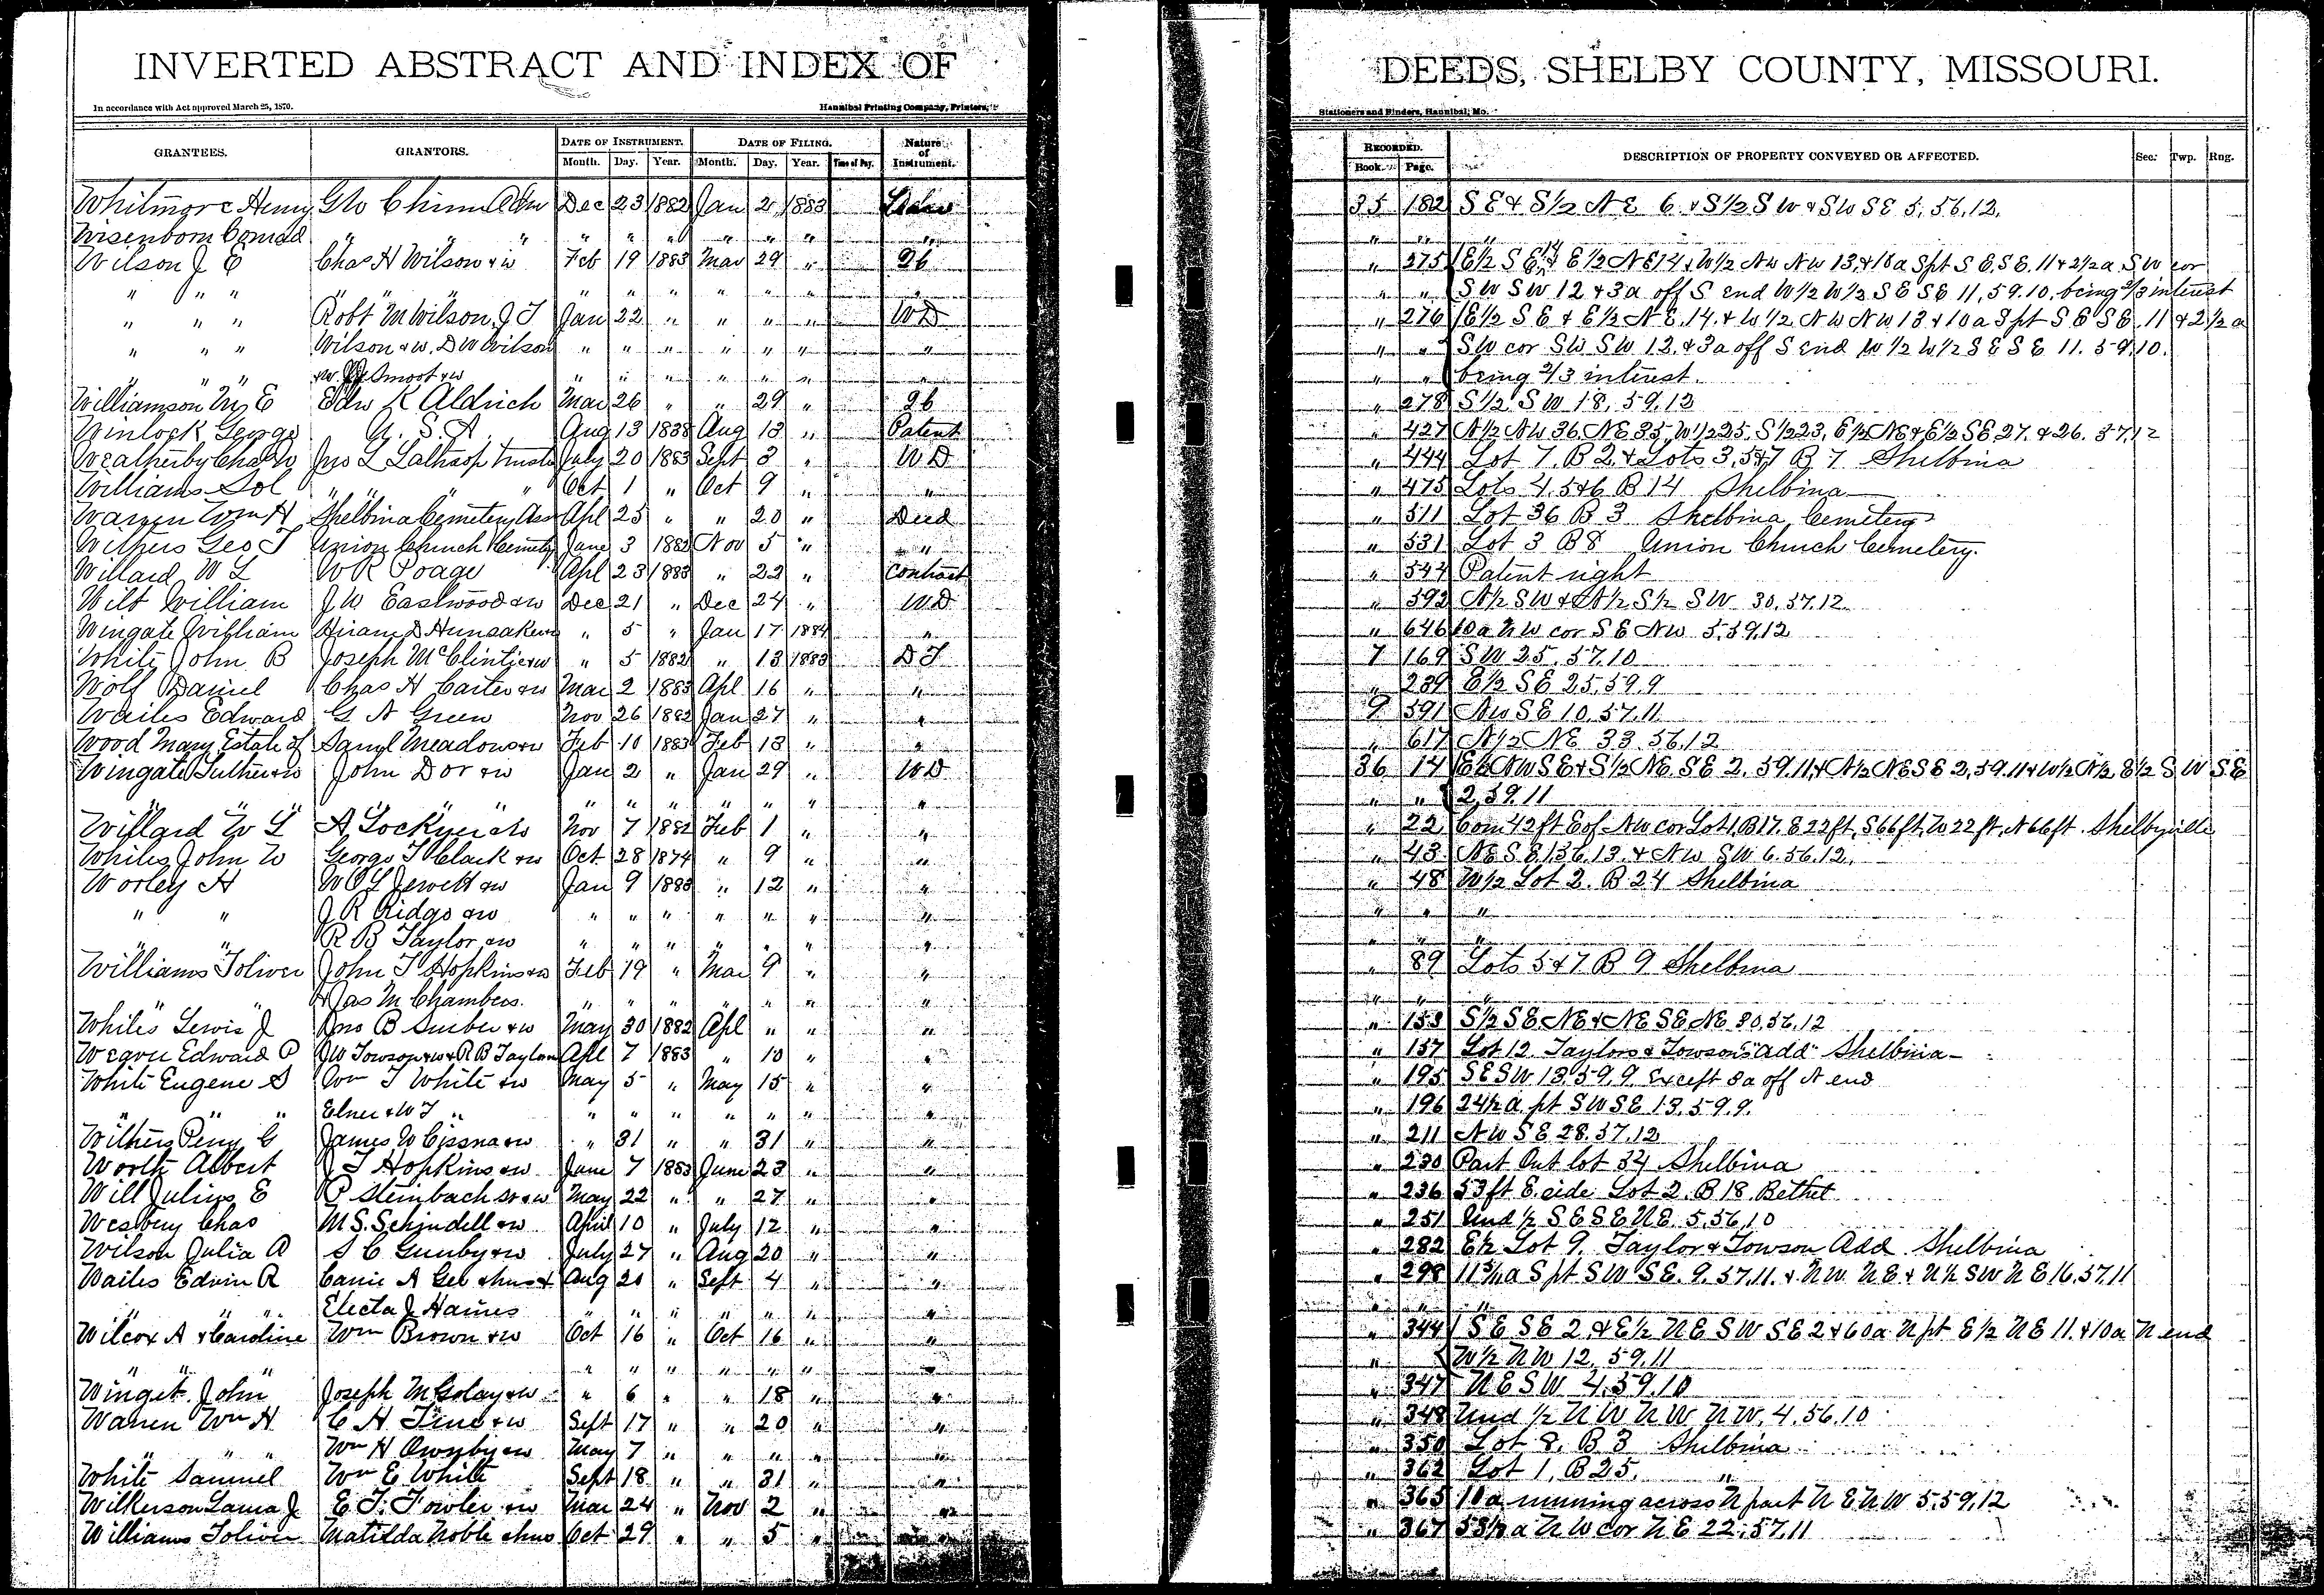 INVERTED ABSTRACT AND INDEX OF DEEDS, SHELBY COUNTY, MISSOURI.
In accordance with Act approved March 25, 1870. Hannibal Printing Company, Printers, Stationers and Binders, Hannibal, Mo.
GRANTEES. GRANTORS. DATE OF INSTRUMENT. DATE OF FILING. Nature of Instrument. RECORDED. DESCRIPTION OF PROPERTY CONVEYED OR AFFECTED. Sec. Twp. Rng.
Month. Day. Year. Month. Day. Year. Time of Day. Book. Page.
Whitmore Henry G W Chinn Adm Dec 23 1882 Jan 2 1883 35 182 S E & S½ N E 6 & S½ S W & S W S E 5, 56, 12.
Wisenborn Conrad " " " " " " " " " " " " "
Wilson J E Chas H Wilson & w Feb 19 1883 Mar 29 " " 275 E½ S E 14 & E½ N E 14 & W½ N W N W 13, & 10 a S pt S E, S E. 11 & 2½ a S W cor
" " " " " " " " " " " " " S W S W 12 & 3 a off S end W½ W½ S E S E 11, 59. 10. being 2/3 interest
" " " Robt M Wilson, J T Jan 22 " " " " W D " 276 E½ S E & E½ N E. 14. & W½ N W N W 13 & 10 a S pt S E S E. 11 & 2½ a
" " " Wilson & w, D W Wilson " " " " " " " " " S W cor S W S W 12. & 3 a off S end W½ W½ S E S E 11. 59. 10.
" " " & w. Smoot & w " " " " " " " " " being 2/3 interest.
Williamson M E Edw K Aldrich Mar 26 " " 29 " " 278 S½ S W 18, 59, 12
Winlock George U. S. A. Aug 13 1838 Aug 13 " Patent " 427 N½ N W 36. N E 35, W½ 25, S½ 23, E½ N E & E½ S E 27. & 26. 57, 12
Weatherby Chas W Jno L Lathrop Trustee July 20 1883 Sept 3 " W D " 444 Lot 7, B 2, & Lots 3, 5 & 7 B 7 Shelbina
Williams Sol " " " Oct 1 " Oct 9 " " " 475 Lots 4, 5 & 6 B 14 Shelbina
Warren Wm H Shelbina Cemetery Ass Apl 25 " " 20 " Deed " 511 Lot 36 B 3 Shelbina Cemetery
Withers Geo T Union Church Cemetery June 3 1882 Nov 5 " " " 531 Lot 3 B 8 Union Church Cemetery.
Willard W L W R Poage Apl 23 1883 " 22 " Contract " 544 Patent right
Wilt William J W Eastwood & w Dec 21 " Dec 24 " W D " 592 N½ S W & N½ S½ S W 30, 57, 12.
Wingate William Hiram D Hunsaker & w " 5 " Jan 17 1884 " " 646 10 a N W cor S E N W 5, 59, 12
White John B Joseph McClintic & w " 5 1882 " 13 1883 D T 7 169 S W 25, 57, 10
Wolf Daniel Chas H Carter & w Mar 2 1883 Apl 16 " " " 239 E½ S E 25, 59, 9
Wailes Edward G A Green Nov 26 1882 Jan 27 " " 9 591 N W S E 10, 57, 11
Wood Mary Estate of Saml Meadows & w Feb 10 1883 Feb 13 " " " 617 N½ N E 33, 56, 12
Wingate Luther & w John Dor & w Jan 2 " Jan 29 " W D 36 14 E½ N W S E & S½ N E. S E 2, 59. 11, & N½ N E S E 2, 59. 11 & W½ N½, E½ S W S E
" " " " " " " " " " " " 2, 59. 11
Willard W L A Lockyer & w Nov 7 1882 Feb 1 " " " 22 Com 42 ft E of N W cor Lot 1, B 17. E 22 ft, S 66 ft, W 22 ft, N 66 ft. Shelbyville
Whiles John W George T Clark & w Oct 28 1874 " 9 " " " 43 N E S E 1, 56, 13. & N W S W 6. 56. 12.
Worley H W O L Jewett & w Jan 9 1883 " 12 " " " 48 W½ Lot 2. B 24 Shelbina
" " J R Ridge & w " " " " " " " " " "
" " R B Taylor & w " " " " " " " " " "
Williams Toliver John T Hopkins & w Feb 19 " Mar 9 " " " 89 Lots 5 & 7 B 9 Shelbina
" " & Jas M Chambers. " " " " " " " " " "
Whiles Lewis J Jno B Surber & w May 30 1882 Apl " " " " 153 S½ S E N E & N E S E N E 30, 56, 12
Weaver Edward P J W Towson & w & R B Taylor & w Apl 7 1883 " 10 " " " 157 Lot 12 Taylors & Towson's "add" Shelbina
White Eugene S Wm T White & w May 5 " May 15 " " " 195 S E S W 13, 59, 9. Except 8 a off N end
" " " Elner & W T " " " " " " " " " 196 24½ a pt S W S E 13. 59. 9.
Withers Peny G James W Cissna & w " 31 " " 31 " " " 211 N W S E 28. 57, 12
Worth Albert J T Hopkins & w June 7 1883 June 23 " " " 230 Part Out lot 34 Shelbina
Will Julius E P Steinbach Sr & w May 22 " " 27 " " " 236 53 ft E. side Lot 2. B 18 Bethel
Wesbury Chas M S. Schindell & w April 10 " July 12 " " " 251 Und ½ S E S E N E. 5, 56, 10
Wilson Julia A S C Gunby & w July 27 " Aug 20 " " " 282 E½ Lot 9, Taylor & Towson Add. Shelbina
Wailes Edwin R Carrie A Gee & hus & Aug 20 " Sept 4 " " " 298 a S pt S W S E. 9. 57, 11. & N W. N E & N½ S W N E 16, 57, 11
" " " Electa J Haines " " " " " " " " " "
Wilcox A & Caroline Wm Brown & w Oct 16 " Oct 16 " " " 344 S E S E 2 & E½ N E S W S E 2 & 60 a N pt E½ N E 11. & 10 a N end
" " " " " " " " " " " W½ N W 12, 59, 11
Winget John Joseph M Golay & w " 6 " " 18 " " " 347 N E S W 4, 59, 10
Warren Wm H C H Tine & w Sept 17 " " 20 " " " 348 Und ½ N W N W N W, 4, 56, 10
" " " Wm H Ownby & w May 7 " " " " " " 350 Lot 8, B 3 Shelbina
White Samuel Wm E White Sept 18 " " 31 " " " 362 Lot 1, B 25, "
Wilkerson Laura J E T. Fowler & w Mar 24 " Nov 2 " " " 365 10 a running across N part N E N W 5, 59, 12
Williams Toliver Matilda Noble & hus Oct 29 " " 5 " " " 367 53½ a N W cor N E 22, 57, 11